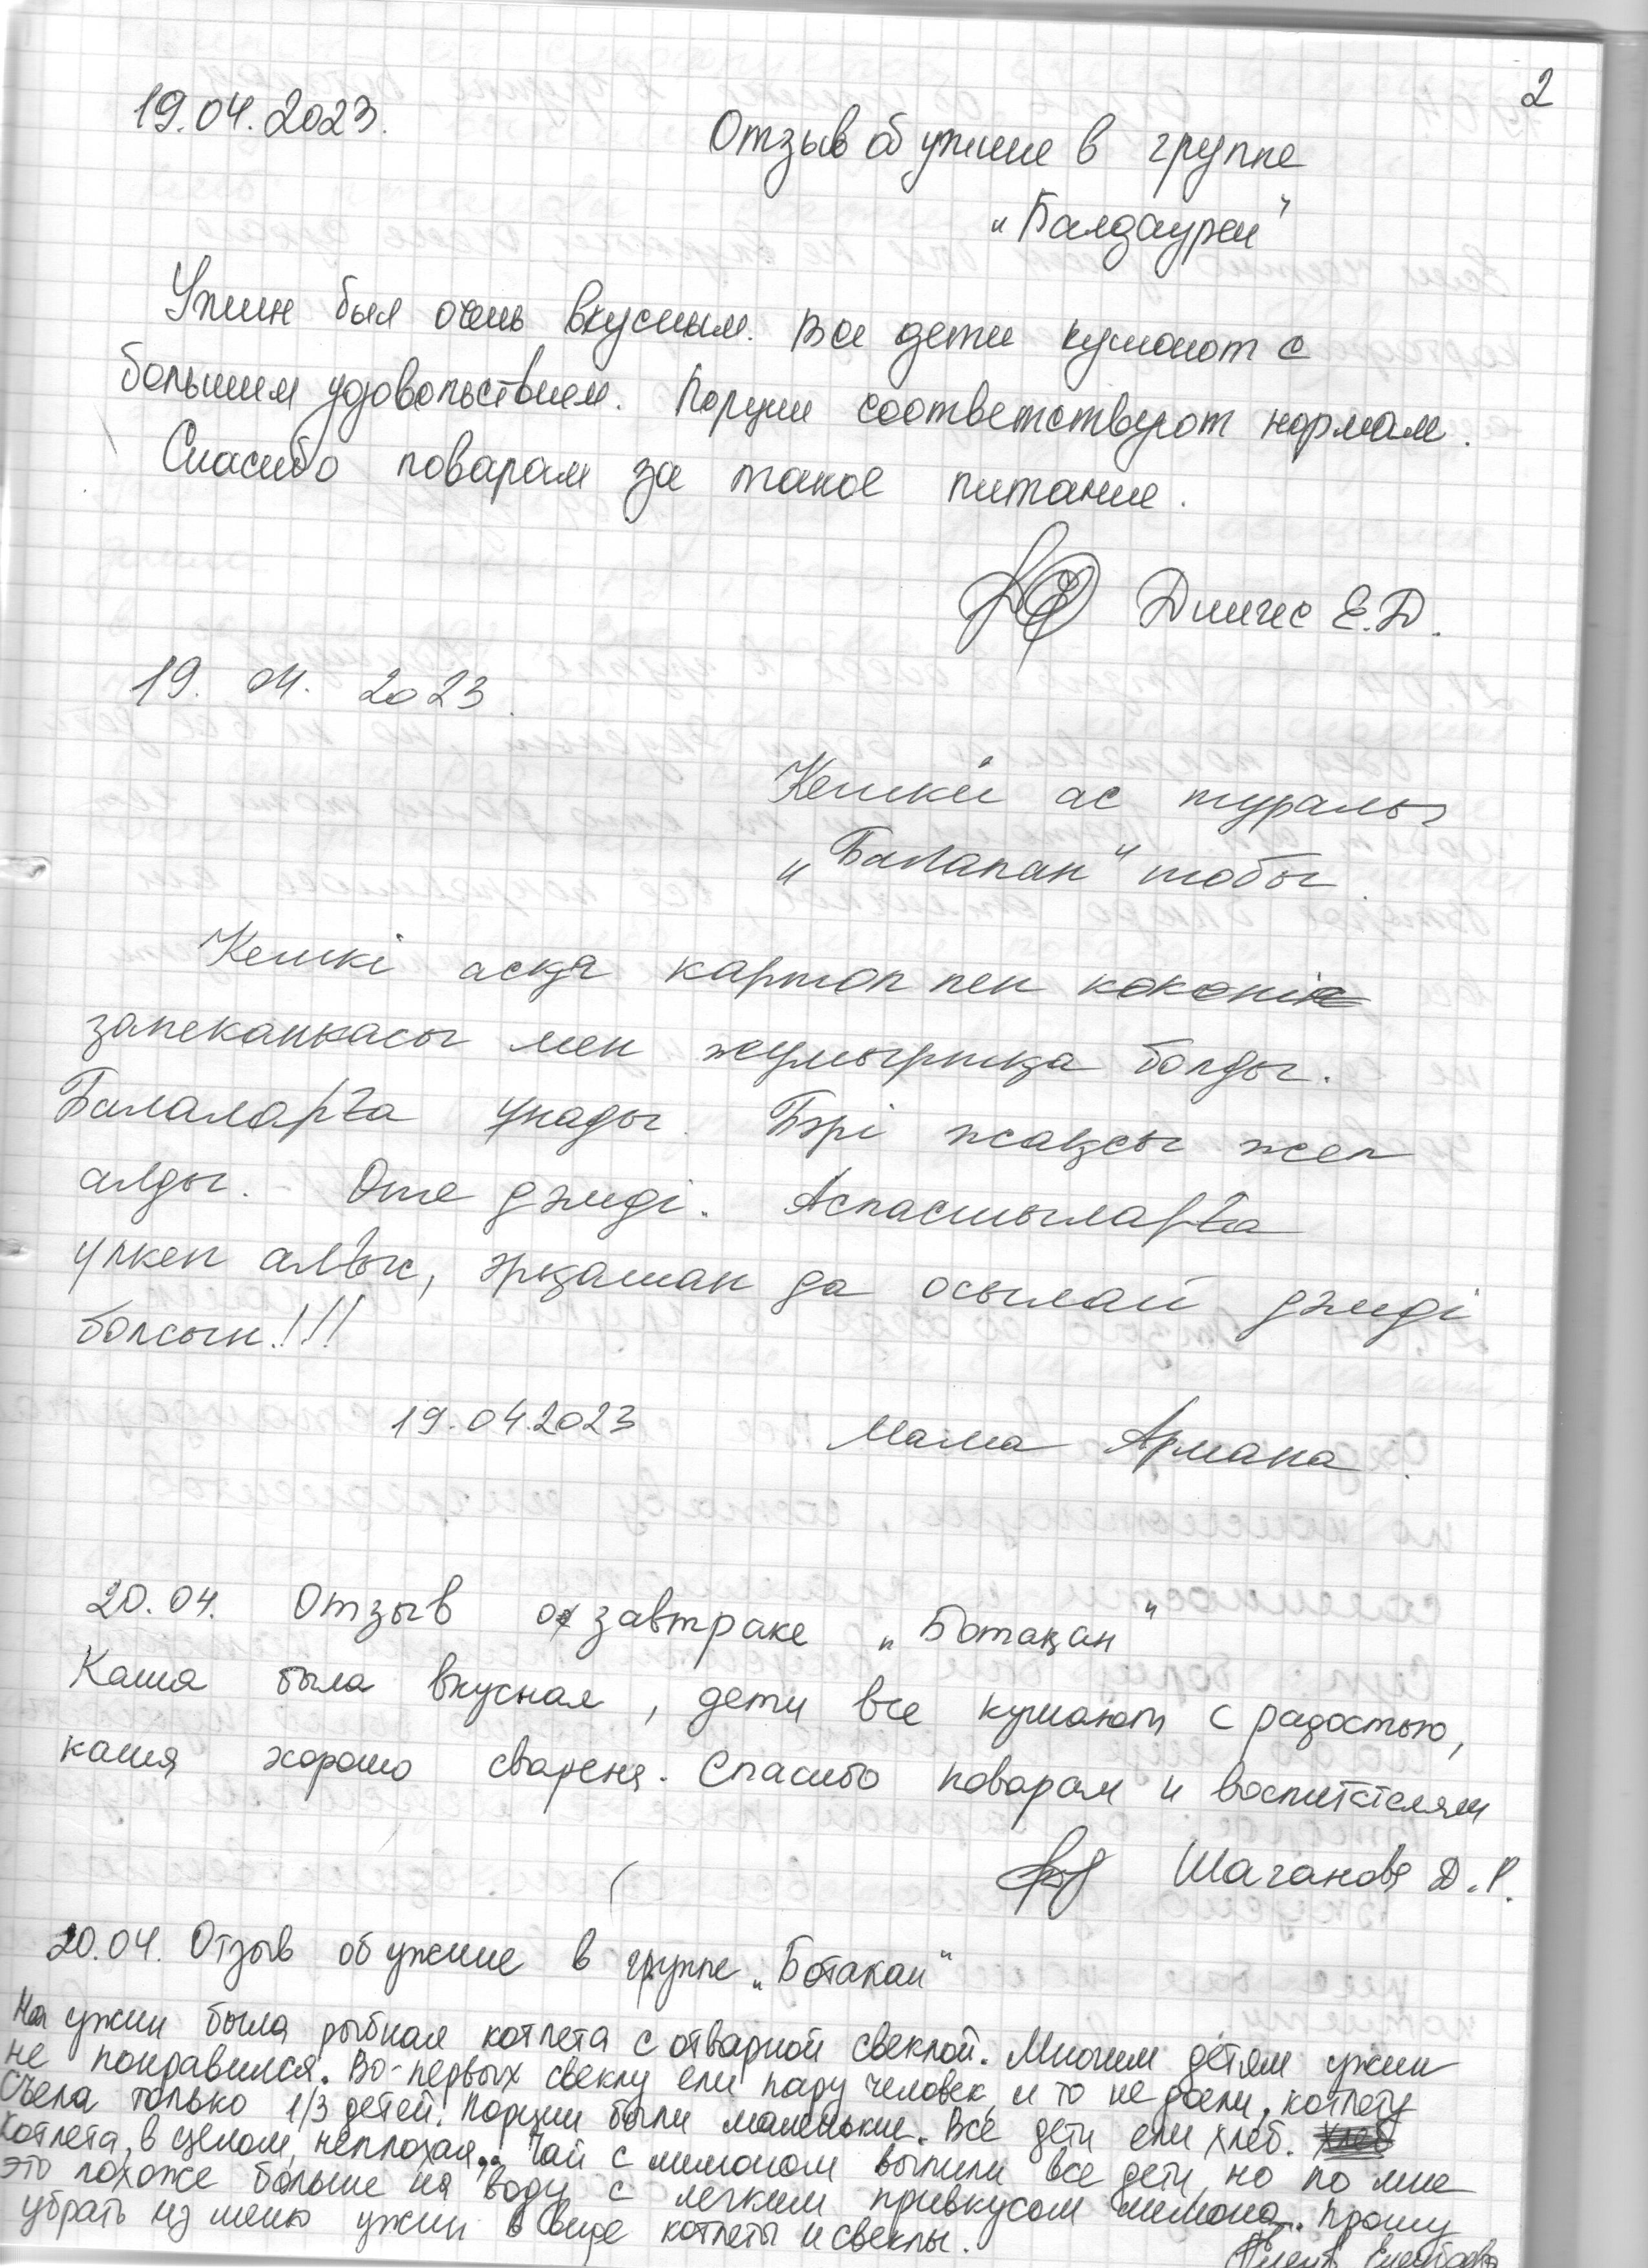 2
19.04.2023.
Отзыв об ужине в группе
"Балдаурен"
Ужин был очень вкусным. Все дети кушают с
большим удовольствием. Порции соответствуют нормам.
Спасибо поварам за такое питание.
Е.Д.
19. 04. 2023.
Кешкі ас туралы
"Балапан" тобы.
Кешкі асқа картоп пен
запеканкасы мен жұмыртқа болды.
Балаларға ұнады. Бәрі жақсы жеп
алды. Өте дәмді. Аспасшыларға
үлкен алғыс, әрқашан да осылай дәмді
болсын!!!
19.04.2023 Мама Армана.
20.04. Отзыв о завтраке "Ботақан"
Каша была вкусная, дети все кушают с радостью,
каша хорошо сварена. Спасибо поварам и воспитателям
Шаганова Д.Р.
20.04. Отзыв об ужине в группе "Ботакан"
На ужин была рыбная котлета с отварной свеклой. Многим детям ужин
не понравился. Во-первых свеклу ели пару человек, и то не доели, котлету
съела только 1/3 детей. Порции были маленькие. Все дети ели хлеб.
Котлета, в целом, неплохая. Чай с лимоном выпили все дети, но по мне
это похоже больше на воду с легким привкусом лимона. Прошу
убрать из меню ужин в виде котлеты и свеклы.